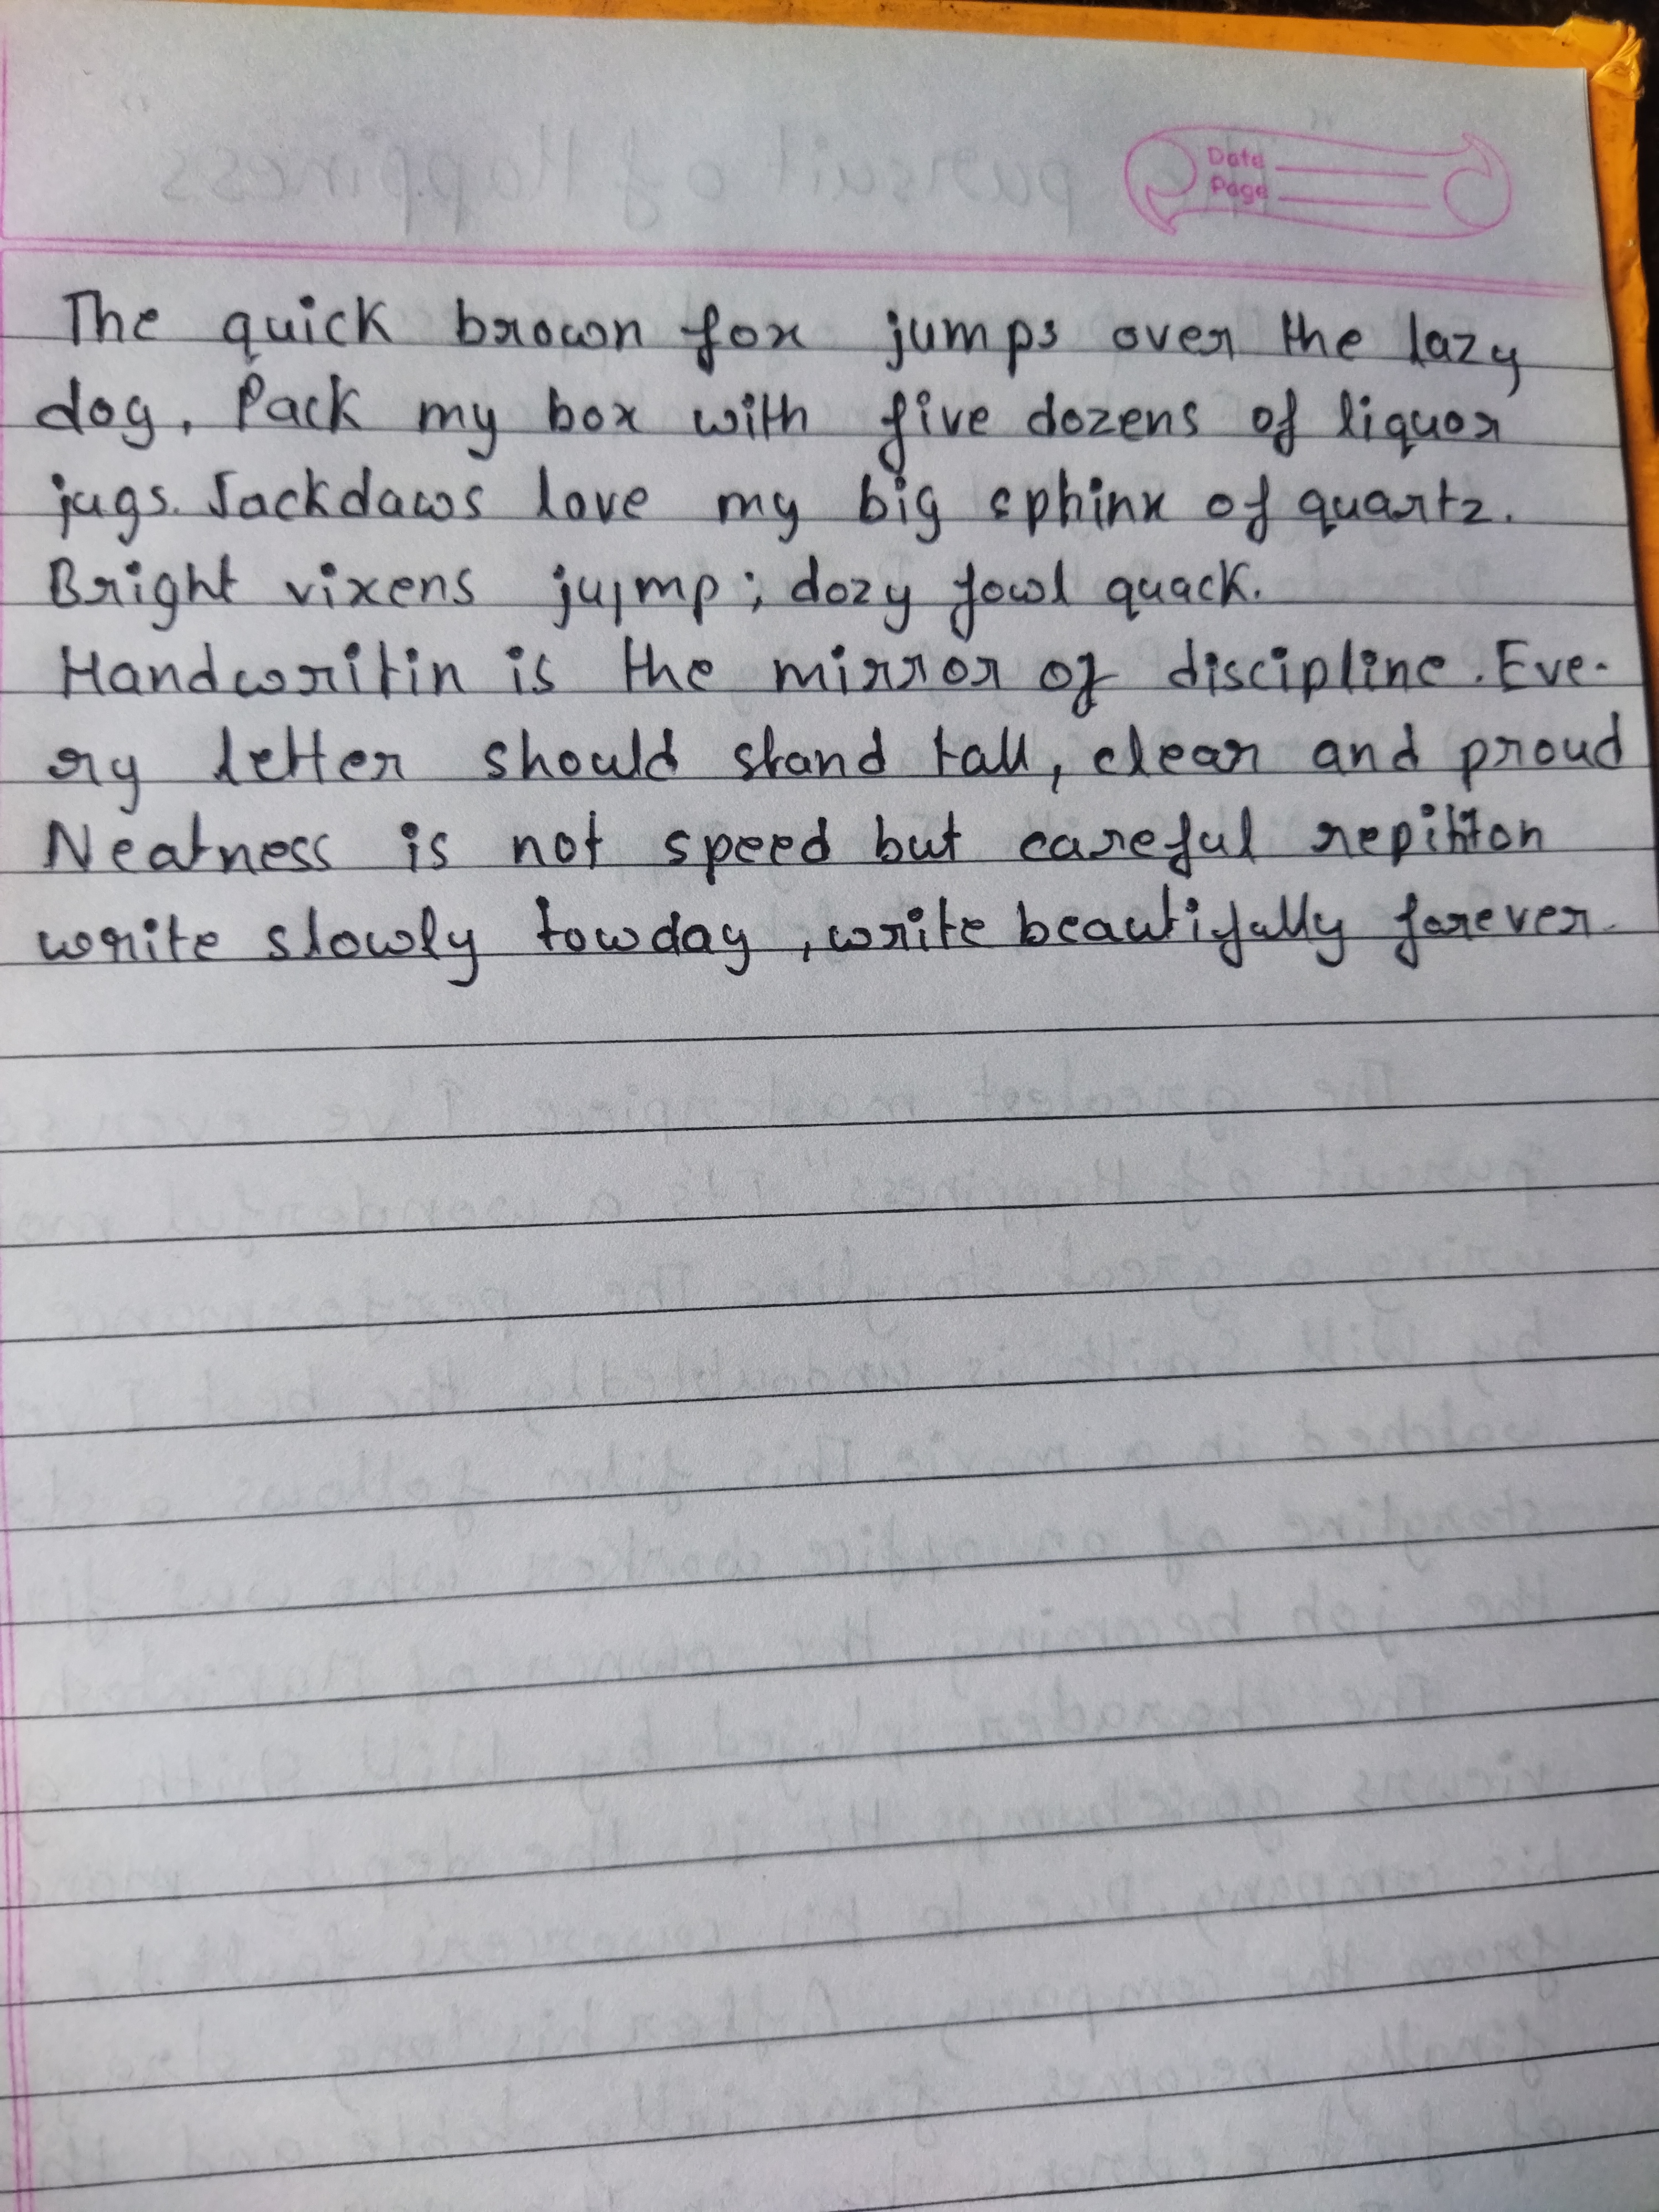 Date
Page
The quick brown fox jumps over the lazy
dog. Pack my box with five dozens of liquor
jugs. Jackdaws love my big sphinx of quartz.
Bright vixens jujmp; dozy fowl quack.
Handwritin is the mirror of discipline. Eve-
ry letter should stand tall, clear and proud
Neatness is not speed but careful
write slowly towday, write beautifully forever.